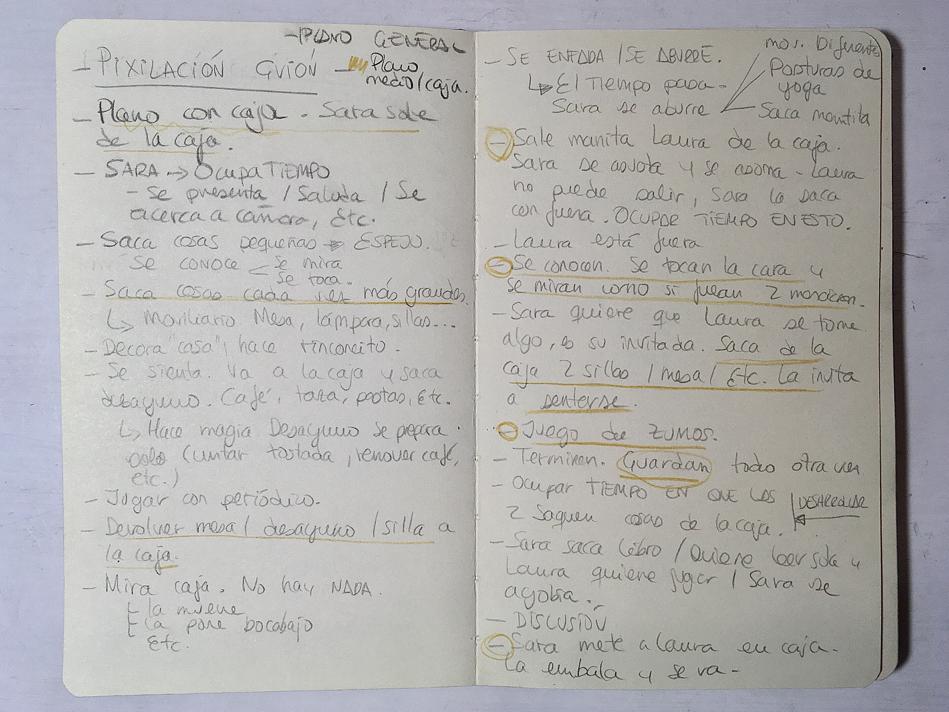 - PLANO GENERAL
- PIXILACIÓN GUIÓN - Plano
medio/caja.
- Plano con caja. Sara sale
de la caja.
- SARA → OCUPA TIEMPO
- Se presenta / Saluda / Se
acerca a cámara, Etc.
- Saca cosas pequeñas → ESPEJO.
Se CONOCE < Se mira
Se toca.
- Saca cosas cada vez más grandes.
↳ Mobiliario. Mesa, lámpara, sillas...
- Decora "casa", hace rinconcito.
- Se sienta. Va a la caja y saca
desayuno. Café, taza, pastas, Etc.
↳ Hace magia Desayuno se prepara
solo (untar tostada, remover café,
etc.)
- Jugar con periódico.
- Devolver mesa / desayuno / silla a
la caja.
- Mira caja. No hay NADA.
la mueve
la pone bocabajo
Etc.
- SE ENFADA / SE ABURRE.
↳ El tiempo pasa -
Sara se aburre
mov. Diferente
Posturas de
yoga
Saca mantita
- Sale manita Laura de la caja.
Sara se asusta y se asoma - Laura
no puede salir, Sara la saca
con fuerza. OCUPAR TIEMPO EN ESTO.
- Laura está fuera
- Se conocen. Se tocan la cara y
se miran como si fueran 2
- Sara quiere que Laura se tome
algo, es su invitada. Saca de la
caja 2 sillas / mesa / Etc. La invita
a sentarse.
- Juego de ZUMOS.
- Terminan. Guardan todo otra vez
- Ocupar TIEMPO EN QUE LAS
2 Saquen cosas de la caja.
DESARROLLAR
- Sara saca libro / Quiere leer sola y
Laura quiere jugar / Sara se
agobia.
- DISCUSIÓN
- Sara mete a Laura en caja.
La embala y se va -